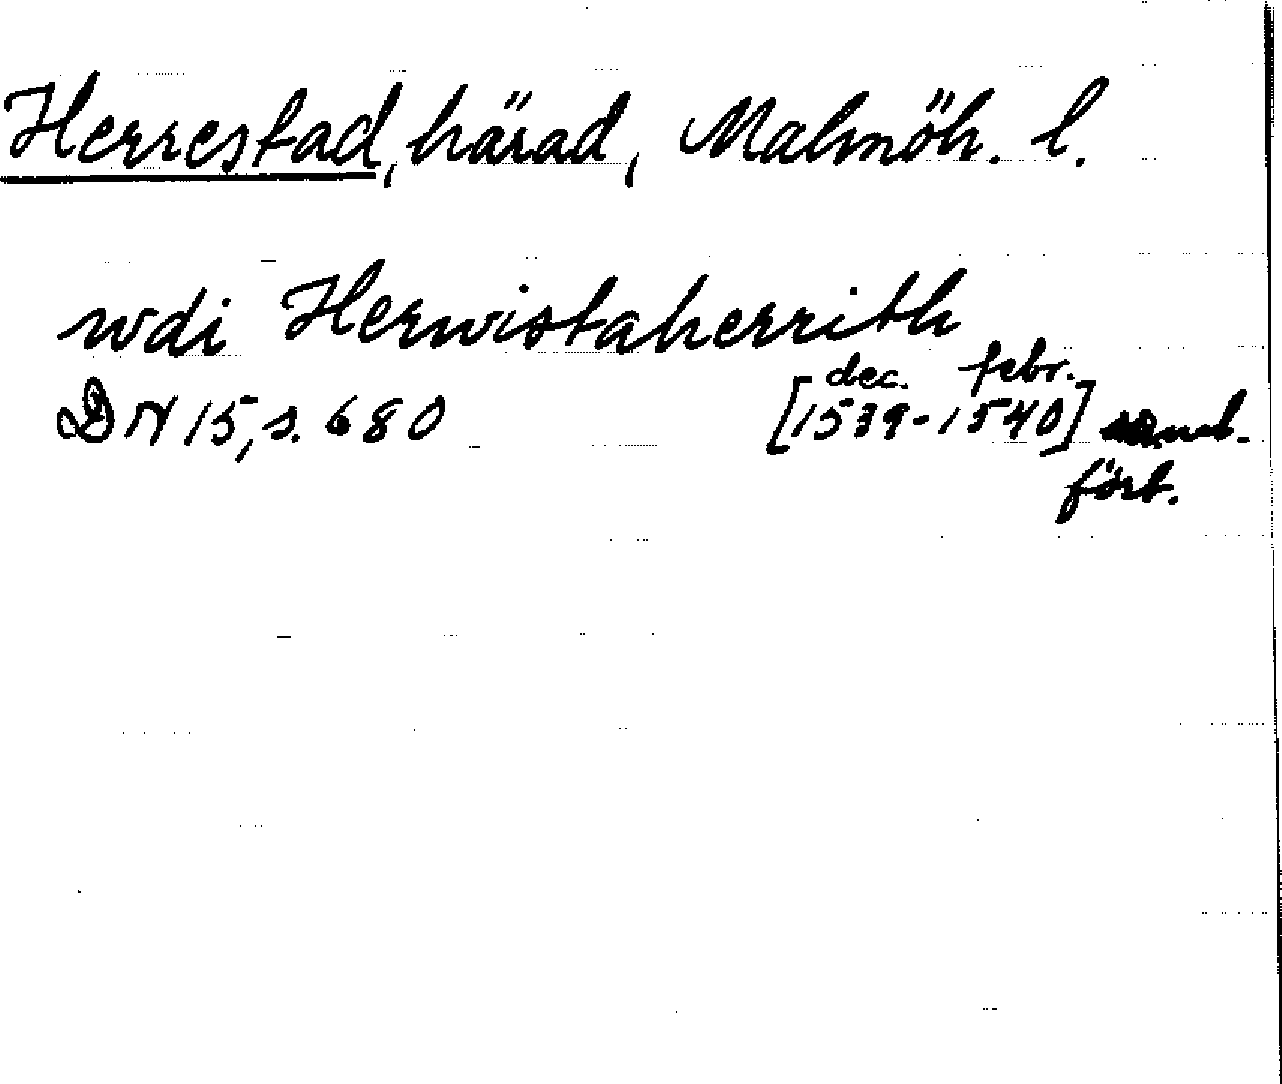 Herrestad, härad, Malmöh. l.
wdi Herwistaherrith
DN 15, s. 680 [dec. 1539 - febr. 1540]
fört.